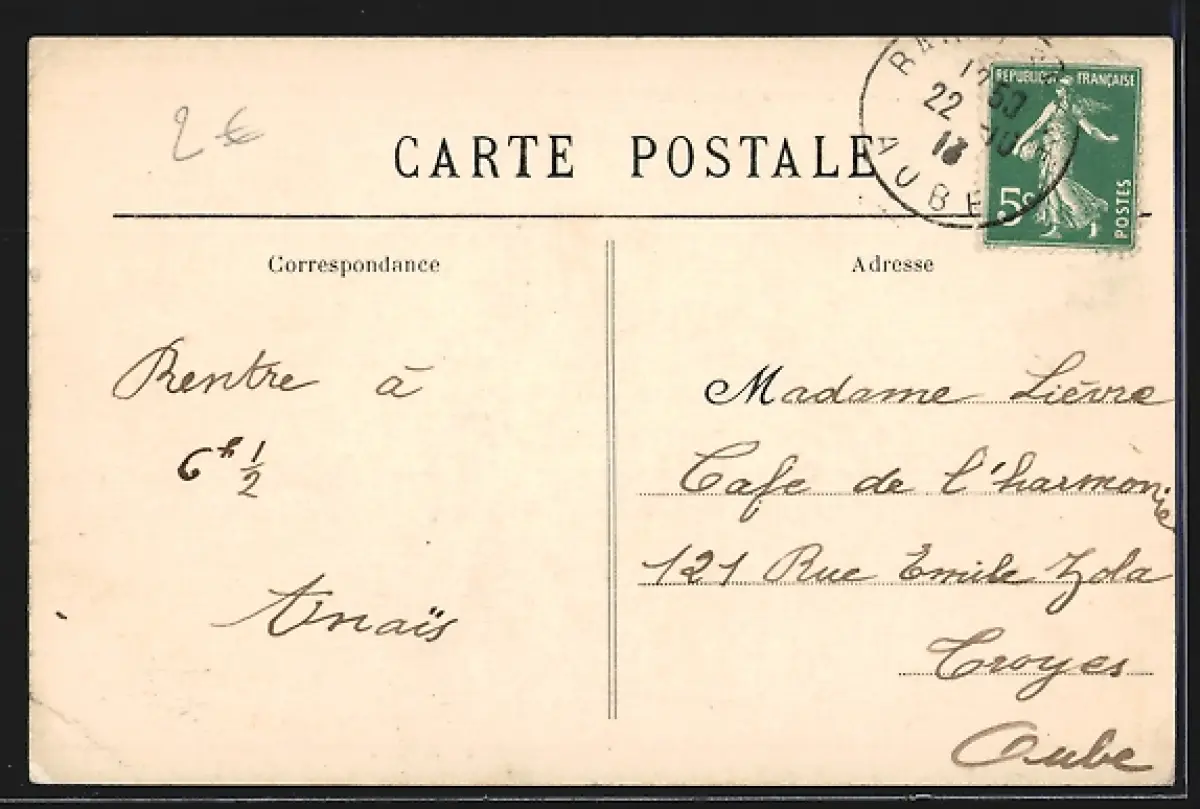 2 €
CARTE POSTALE
REPUBLIQUE FRANÇAISE
5c
POSTES
22
AUBE
Correspondance
Rentre à
6 h 1/2
Anaïs
Adresse
Madame Lièvre
Cafe de l'harmonie
121 Rue Emile Zola
Troyes
Aube